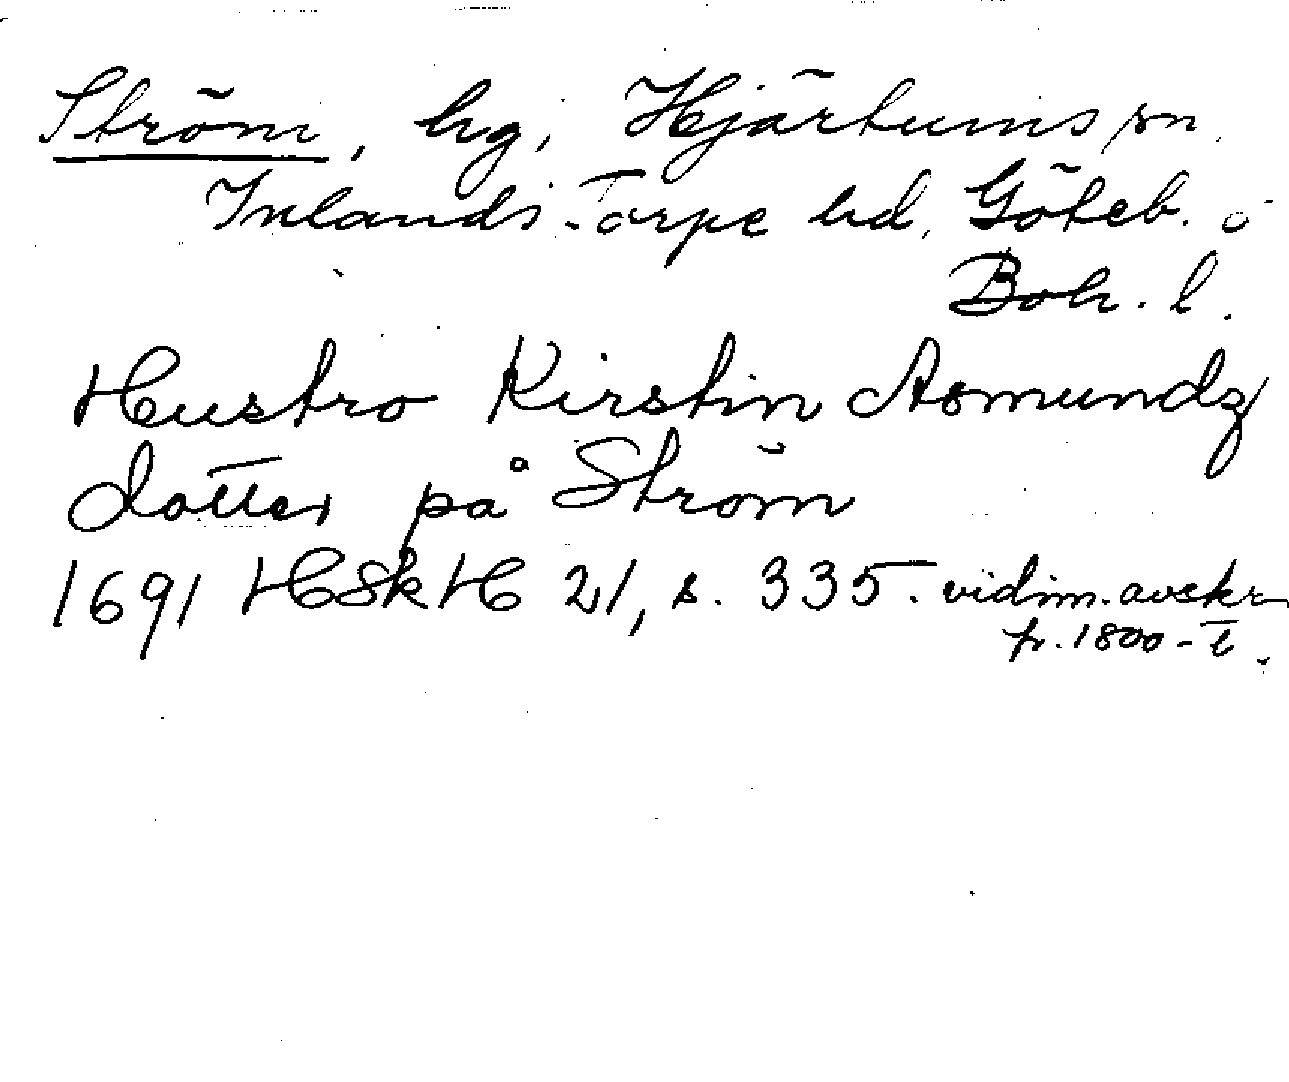 Ström, hg, Hjärtums sn,
Inlands-Torpe hd, Göteb. o
Boh. l.
Hustro Kirstin Asmundz
dotter på Ström
1691 HSkH 21, s. 335. vidim. avskr
fr. 1800-t.